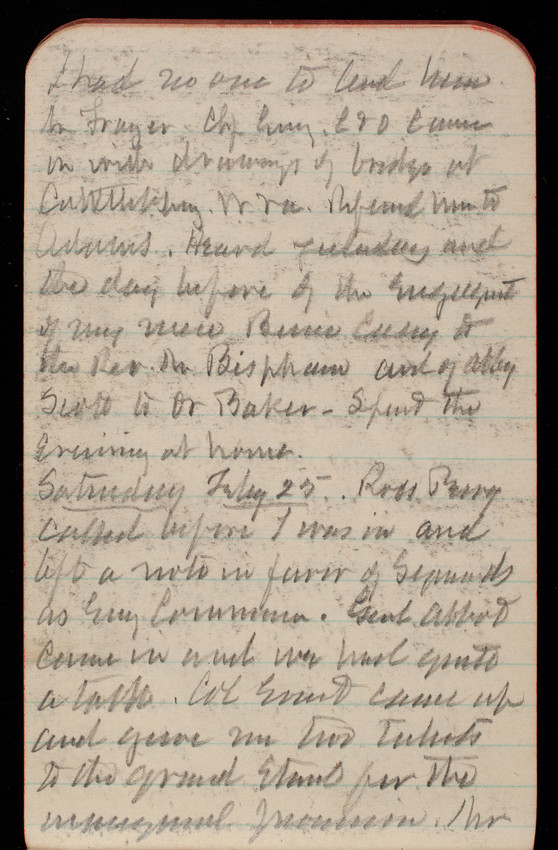 I had no one to lend him
Mr Frazer. Chf Eng. C & O came
in with drawings of bridge at
W Va. Referred him to
Adams. Heard yesterday and
the day before of the engagement
of my niece Bessie Casey to
the Rev. Mr Bispham and of Abby
Scott to Dr Baker - Spent the
evening at home.
Saturday Feby 25. Ross Perry
called before I was in and
left a note in favor of Symonds
as Eng Commr. Genl Abbot
came in and we had quite
a talk. Col Ernst came up
and gave me two tickets
to the grand stand for the
inaugural procession. Mr